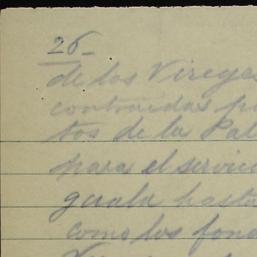 26-
de los Virreye
contenidas pa
tos de la Pal
para el servici
guala hasta
como los fond